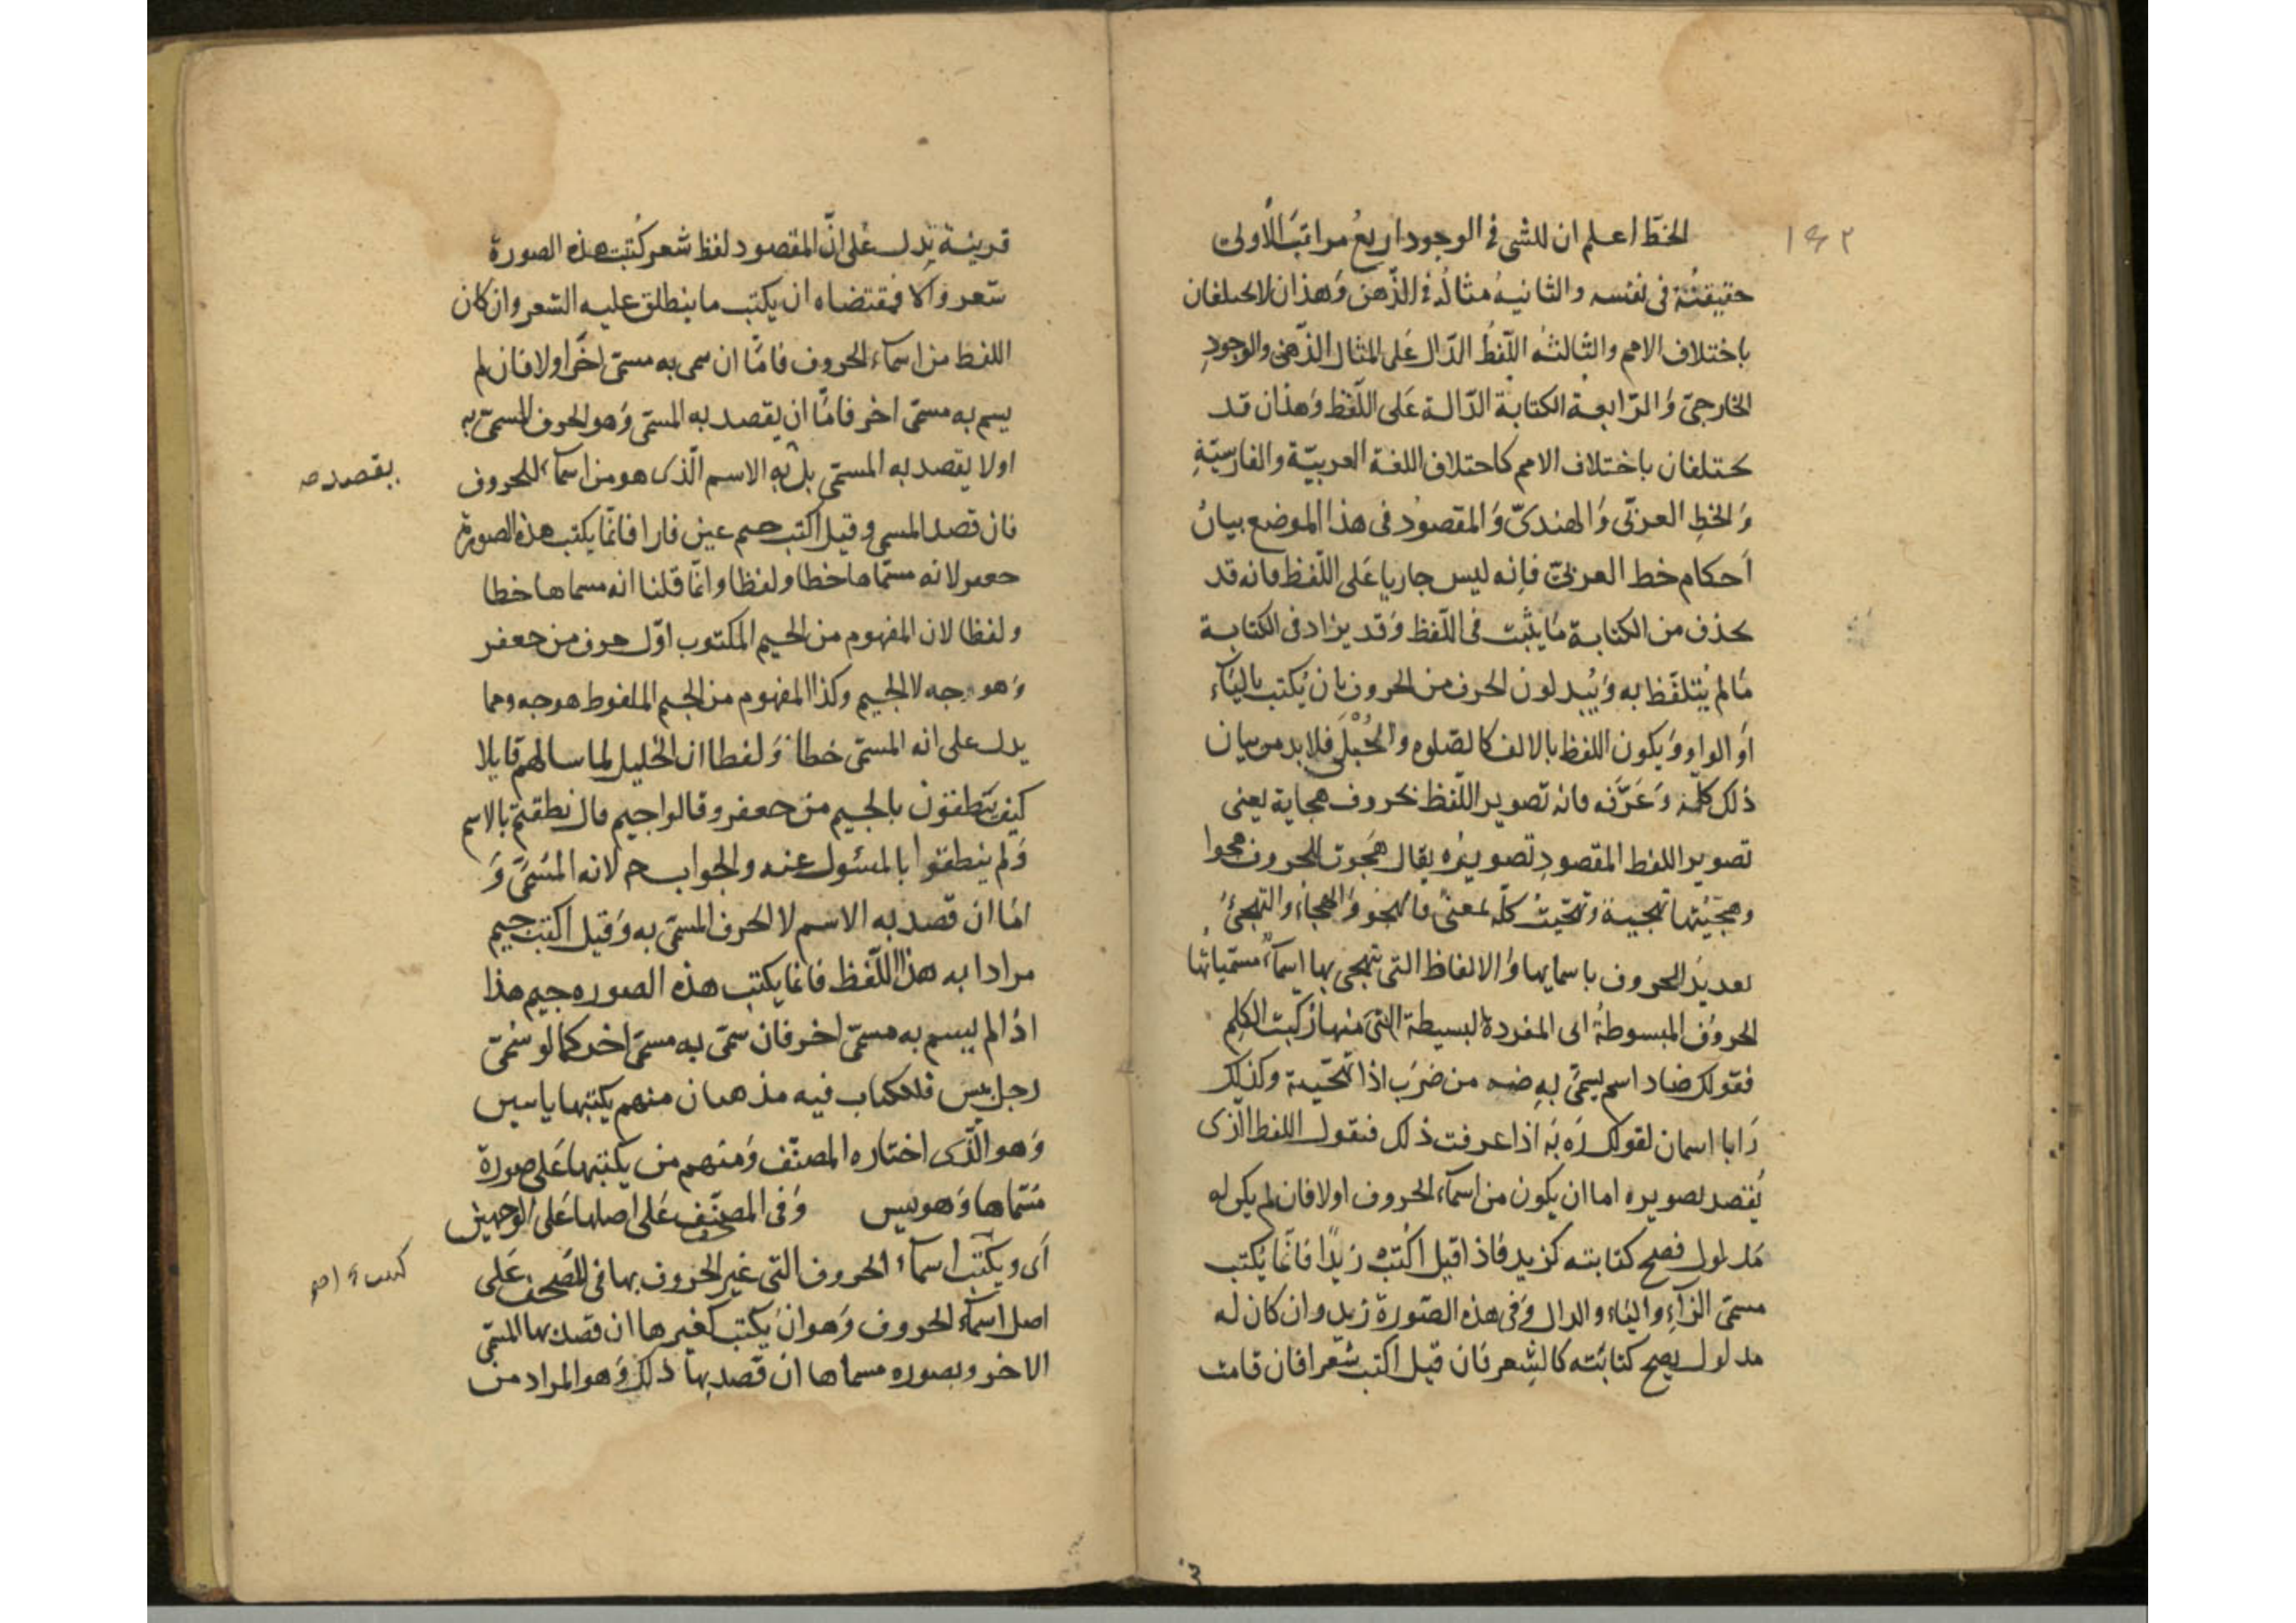 ١٤٣
الخطّ اعلم ان للشى فى الوجود اربعُ مراتبَ الأولى
حقيقتُه فى نفسه والثانيهُ مثالُهُ فى الذّهن وَهذان لا يختلفان
باختلاف الامم والثالثه اللّفظُ الدّال عَلى المثال الذّهنى والوجودِ
الخارجىّ وَالرّابعة الكتابة الدّالة عَلى اللّفظ وَهذان قد
يختلفان باختلاف الامم كاختلاف اللغة العربيّة والفارسيّةِ
وَالخطِ العربىّ وَالهندىّ وَالمقصوُد فى هذا الموضع بيانُ
اَحكام خط العربىّ فاِنه ليس جاريا عَلى اللّفظ فانه قد
يحذف من الكتابة مَا يثبت فى اللّفظ وَقد يزاد فى الكتابة
مَا لم يُتلفّظ به وَيُبدلون الحرف من الحروف بان يُكتب باليَآء
اَو الواو وَيكون اللفظ بالالف كالصّلوه والحُبْلَى فلا بد من بيان
ذلك كلّه وَعَرَّفه فانه تصوير اللّفظ بحروف هجاية يعنى
تصوير اللفظ المقصودِ تصويرُه يقال هَجَوت الحروف هجوا
وهجّيتُها تهجية وتهجّيتُ كلّه بمعنىً فالهجو وَالهجآء والتهجّى
تعديدُ الحروف باسمايها وَالالفاظ التى تهجى بها اسمآء مسمّياتُها
الحروُف المبسوطةُ اى المفردة البسيطة التى منها رُكّبت الكلِم
فقولك ضاد اسم يسمّى بهِ ضه من ضرَب اذا تهجّيته وكذلك
رَا با اسمان لقولك رَه بَه اذا عرفت ذلك فنقول اللفظ الذى
يُقصد تصويره اما ان يكون من اسمآء الحروف اولا فان لم يكن له
مَدلول فصح كتابته كزيد فاذا قيل اُكتبْ زيدًا فانّما يُكتب
مسمّى الزآءِ واليآء والدال وَفى هذه الصّورة زيد وان كان له
مدلول يصح كتابته كالشِعر فان قيل اكتب شعرا فان قامت
قرينة تدل عَلى انّ المقصود لفظ شعر كُتبت هذه الصورة
شعر والا فمقتضاه ان يكتب ما ينطلق عليه الشعر وان كان
اللفظ من اسمآء الحروف فامّا ان سمى به مسمّى اخر اولا فان لم
يسم به مسمّى اخر فامّا ان يقصد به المسمّى وَهو الحرف المسمّى به
اولا يقصد به المسمّى بل به الاسم الّذى هو من اسمآء الحروف
يقصد صه
فان قصد المسمى وقيل اكتب جيم عين فا را فانّما يكتب هذه الصورة
جعفر لانه مسمّاها خطا ولفظا وانّما قلنا انه مسماها خطا
ولفظا لان المفهوم من الجيم المكتوب اوّل حرف من جعفر
وَهو جه لا الجيم وكذا المفهوم من الجيم الملفوظ هو جه ومما
يدل على انه المسمّى خطا وَلفظا ان الخليل لما سالهم قايلا
كيف يَنطقون بالجيم من جعفر وقالوا جيم قال نطقتم بالاسم
وَلم ينطقوا بالمسئول عنه والجواب جه لانه المسَمّىَ وَ
امّا ان قصد به الاسم لا الحرف المسمّى به وَقيل اكتب جيم
مرادا به هذا اللّفظ فانما يكتب هذه الصوره جيم هذا
اذا لم يسم به مسمّى اخر فان سمّى به مسمّى اخر كما لو سُمّى
رجل بيس فللكتاب فيه مذهبان منهم يكتبها ياسين
وَهو الّذى اختاره المصنّف وَمنهم من يكتبها عَلى صورة
مُسَمّاها وَهو يس وَفى المصحف عَلى اصلها عَلى الوجهين
اَى ويكتب اسمآء الحروف التى غير الحروف بها فى المصحف عَلى
اصل اسمآء الحروف وَهو ان يكتب كغيرها ان قصد بها المسمّى
الاخر وبصوره مسماها ان قصد بها ذلك وَهو المراد من